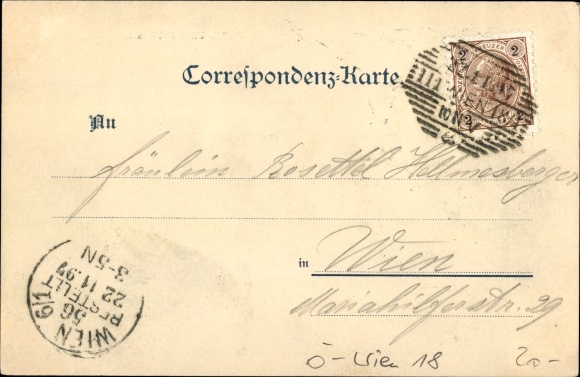 Correspondenz-Karte.
An
Fräulein Rosette Hellmesberger
in Wien
Mariahilferstr. 29
2 KREUZER 2
2 2
III WIEN
WIEN 6/1
56
BESTELLT
22 11.97
3-5N
Ö-Wien 18
20-